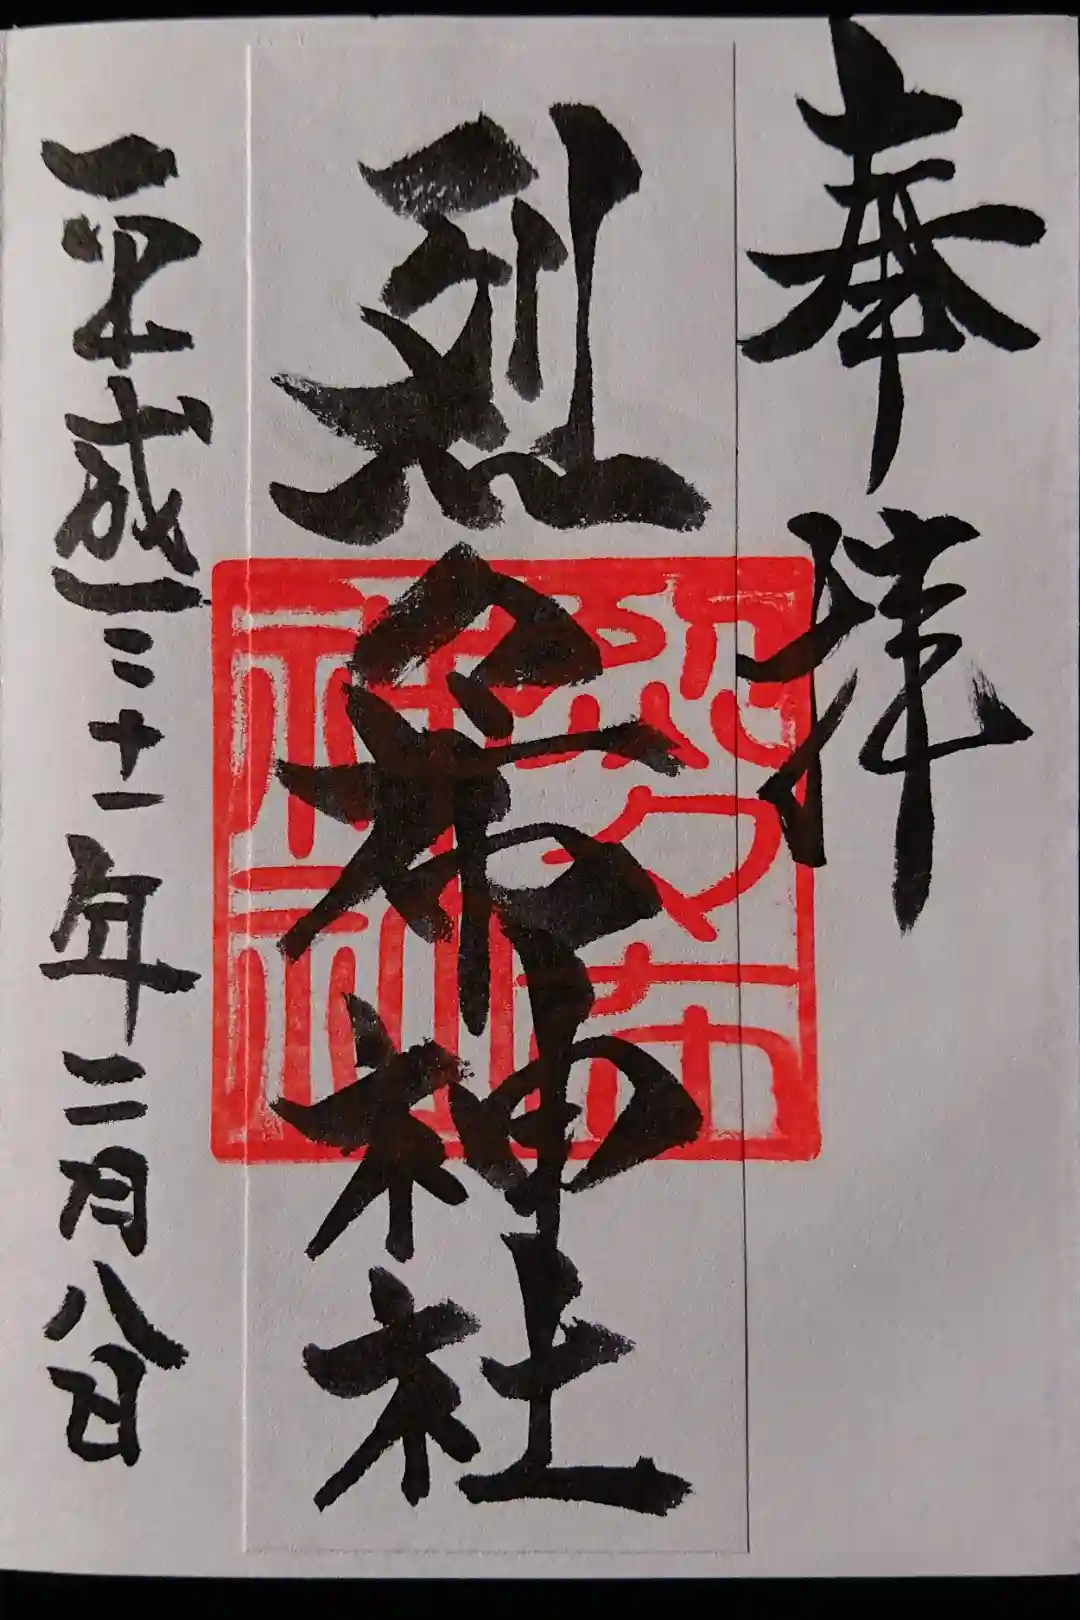 奉拝
烈々布神社
平成三十一年二月八日
烈々布
神社